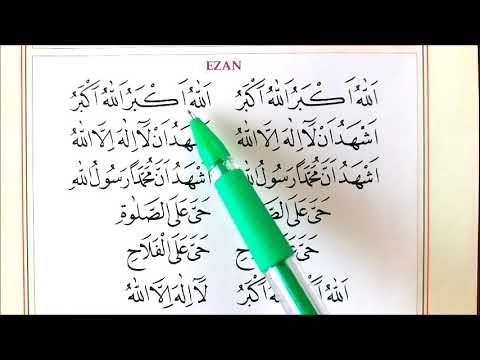 EZAN
اَللّٰهُ اَكْبَرُ اَللّٰهُ اَكْبَرُ اَللّٰهُ اَكْبَرُ اَللّٰهُ اَكْبَرُ
اَشْهَدُ اَنْ لَٓا اِلٰهَ اِلَّا اللّٰهُ اَشْهَدُ اَنْ لَٓا اِلٰهَ اِلَّا اللّٰهُ
اَشْهَدُ اَنَّ مُحَمَّدًا رَسُولُ اللّٰهِ اَشْهَدُ اَنَّ مُحَمَّدًا رَسُولُ اللّٰهِ
حَيَّ عَلَى حَيَّ عَلَى الصَّلٰوةِ
حَيَّ عَلَى حَيَّ عَلَى الْفَلَاحِ
اَللّٰهُ اَكْبَرُ لَٓا اِلٰهَ اِلَّا اللّٰهُ